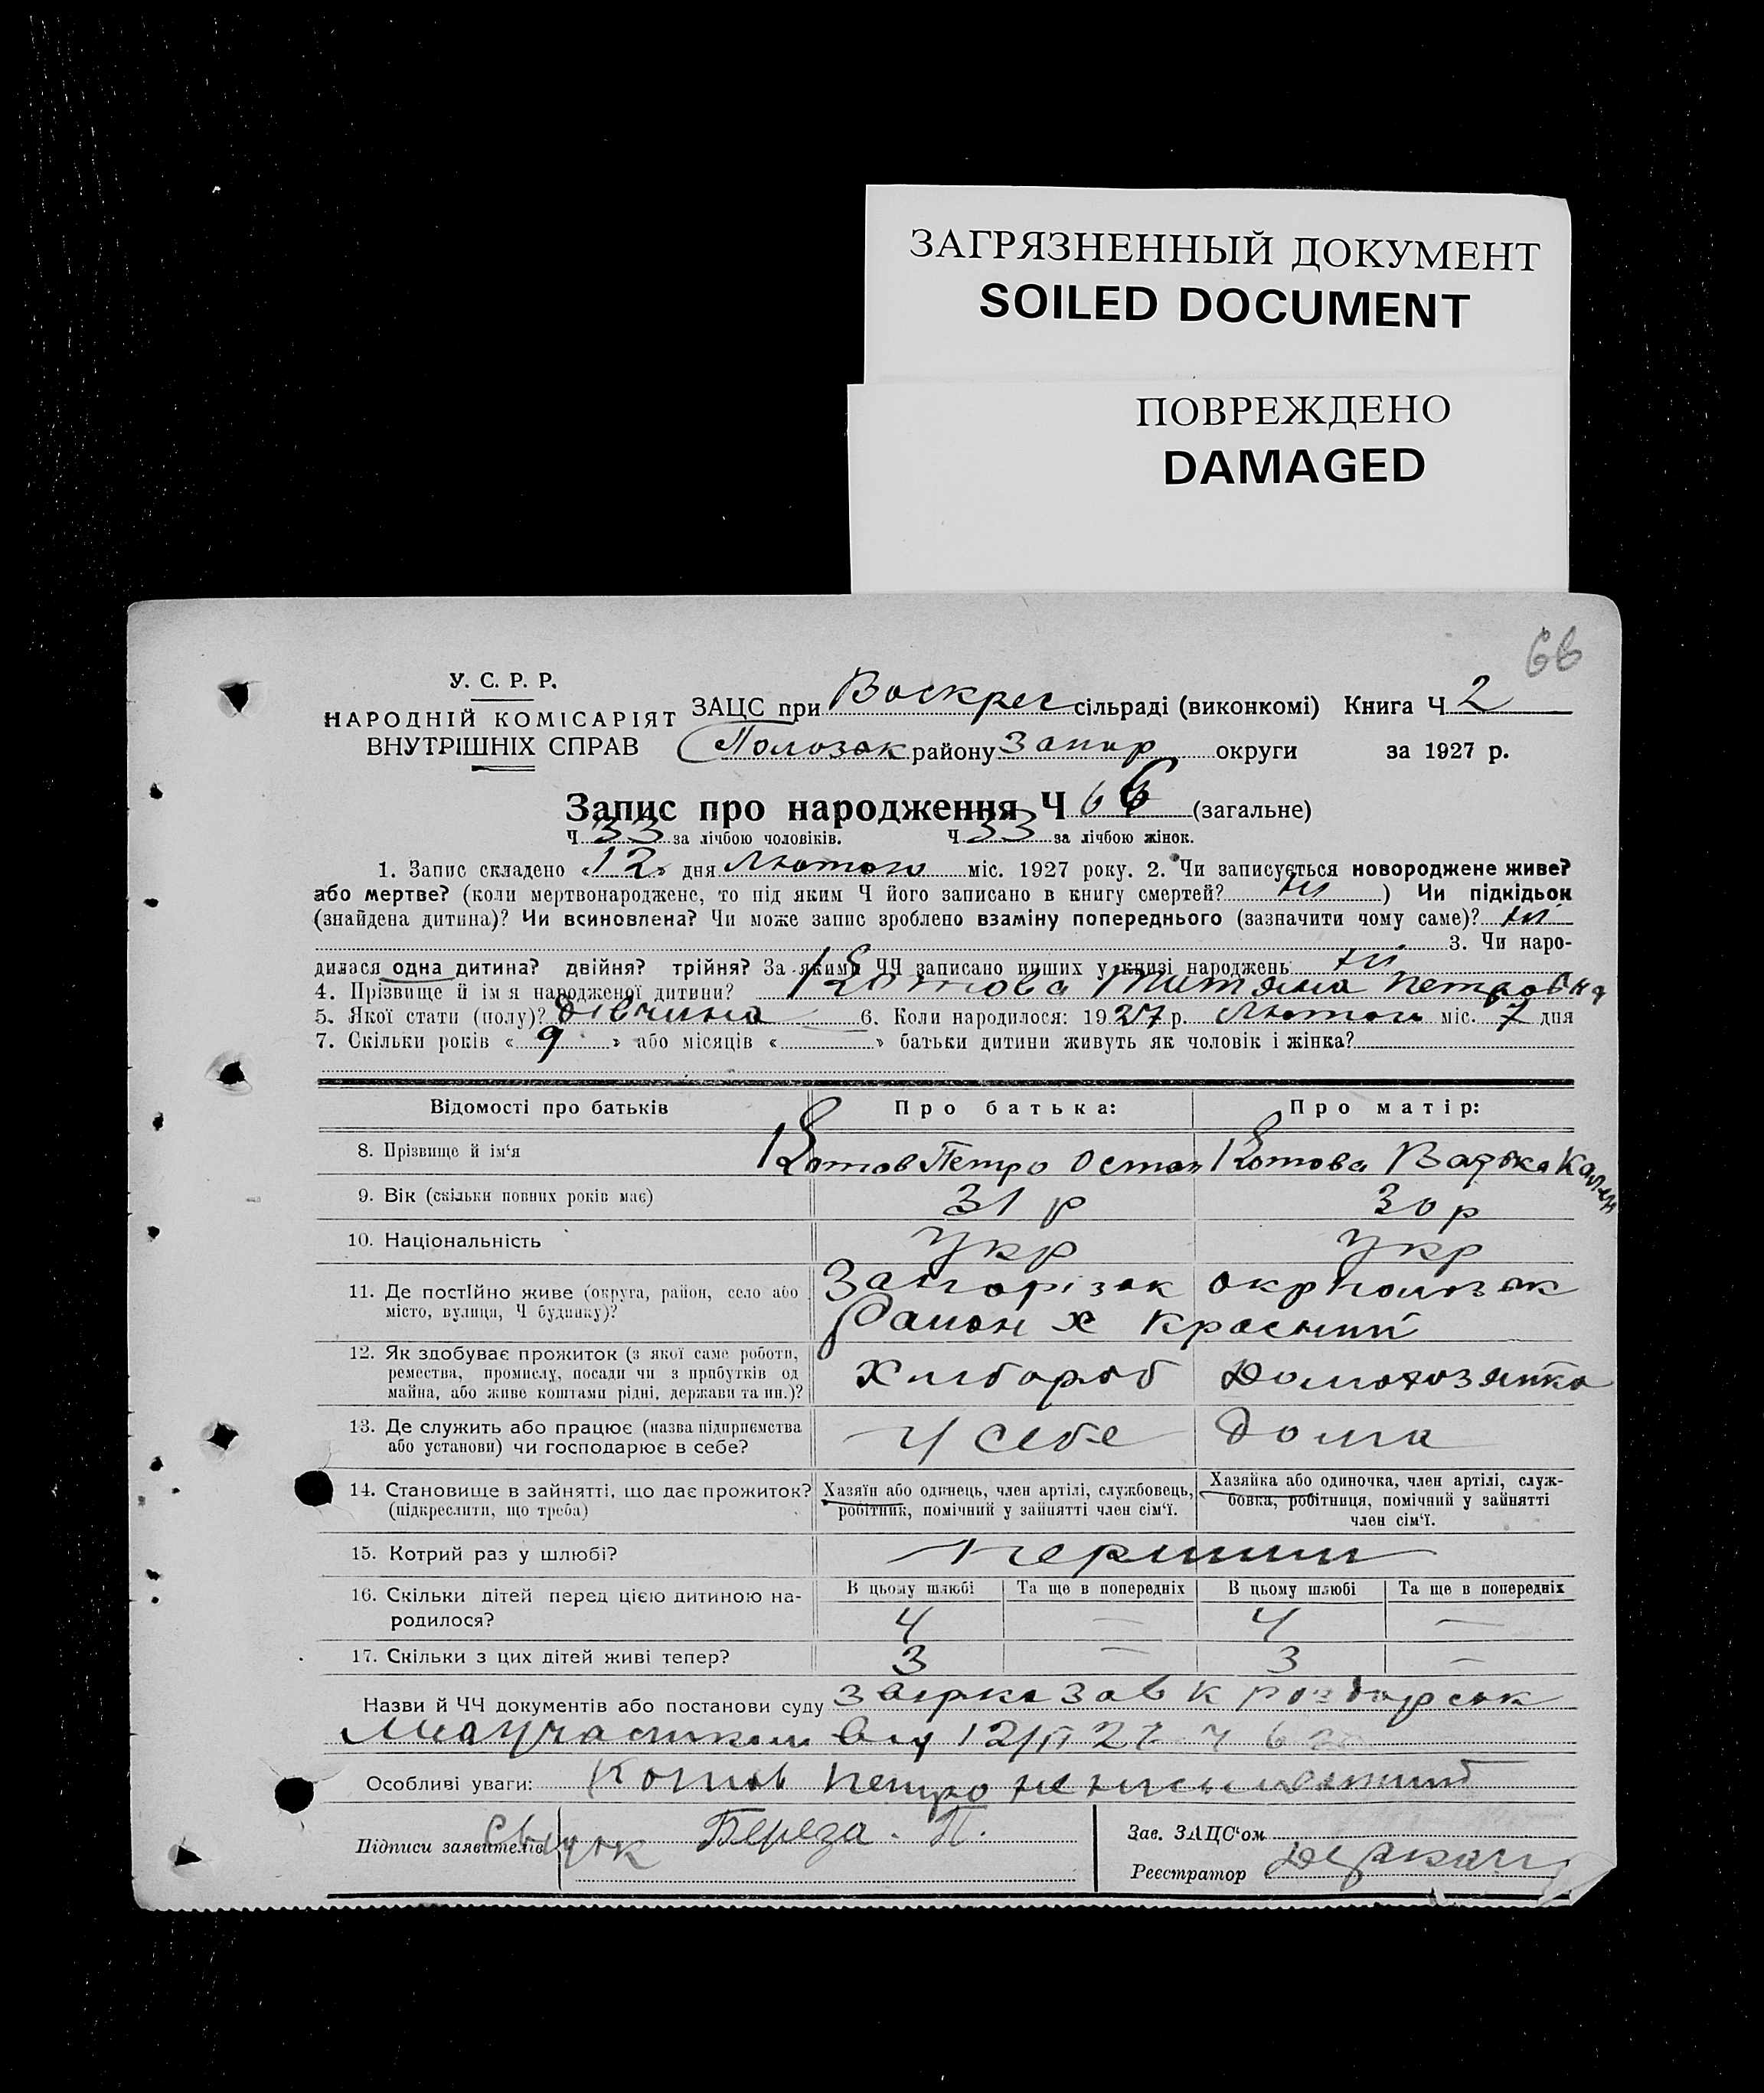 ЗАГРЯЗНЕННЫЙ ДОКУМЕНТ
SOILED DOCUMENT
ПОВРЕЖДЕНО
DAMAGED
66
У. С. Р. Р.
НАРОДНІЙ КОМІСАРІЯТ
ВНУТРІШНІХ СПРАВ
ЗАЦС при Воскрес сільраді (виконкомі) Книга Ч 2
Пологзак району Запор округи за 1927 р.
Запис про народження Ч 66 (загальне)
Ч 33 за лічбою чоловіків. Ч 33 за лічбою жінок.
1. Запис складено «12» дня Лютого міс. 1927 року. 2. Чи записується новороджене живе?
або мертве? (коли мертвонароджене, то під яким Ч його записано в книгу смертей? ні ) Чи підкідьок
(знайдена дитина)? Чи всиновлена? Чи може запис зроблено взаміну попереднього (зазначити чому саме)? ні
3. Чи наро-
дилася одна дитина? двійня? трійня? За якими ЧЧ записано инших у книзі народжень ні
4. Прізвище й ім'я народженої дитини? Котова Титяна Петровна
5. Якої стати (полу)? дівчина 6. Коли народилося: 1927 р. Лютого міс. 7 дня
7. Скільки років «9» або місяців « » батьки дитини живуть як чоловік і жінка?
Відомості про батьків Про батька: Про матір:
8. Прізвище й ім'я Котов Петро Остап Котова Варка Кален
9. Вік (скільки повних років має) 31 р 30 р
10. Національність Укр Укр
11. Де постійно живе (округа, район, село або Запорізак окр Пологзак
місто, вулиця, Ч будинку)? Район х Красний
12. Як здобуває прожиток (з якої саме роботи,
ремества, промислу, посади чи з прибутків од Хлибороб Домохозяйка
майна, або живе коштами рідні, держави та ин.)?
13. Де служить або працює (назва підприємства У себе Дома
або установи) чи господарює в себе?
14. Становище в зайнятті, що дає прожиток? Хазяїн або одинець, член артілі, службовець, Хазяйка або одиночка, член артілі, служ-
(підкреслити, що треба) робітник, помічний у зайнятті член сім'ї. бовка, робітниця, помічний у зайнятті
член сім'ї.
15. Котрий раз у шлюбі? Перший
В цьому шлюбі Та ще в попередніх В цьому шлюбі Та ще в попередніх
16. Скільки дітей перед цією дитиною на-
родилося? 4 — 4 —
17. Скільки з цих дітей живі тепер? 3 — 3 —
Назви й ЧЧ документів або постанови суду
12/II 27 Ч 6
Особливі уваги: Котов Петро неписьменний
Підписи заявителів Береза. П.
Зав. ЗАЦС'ом
Реєстратор